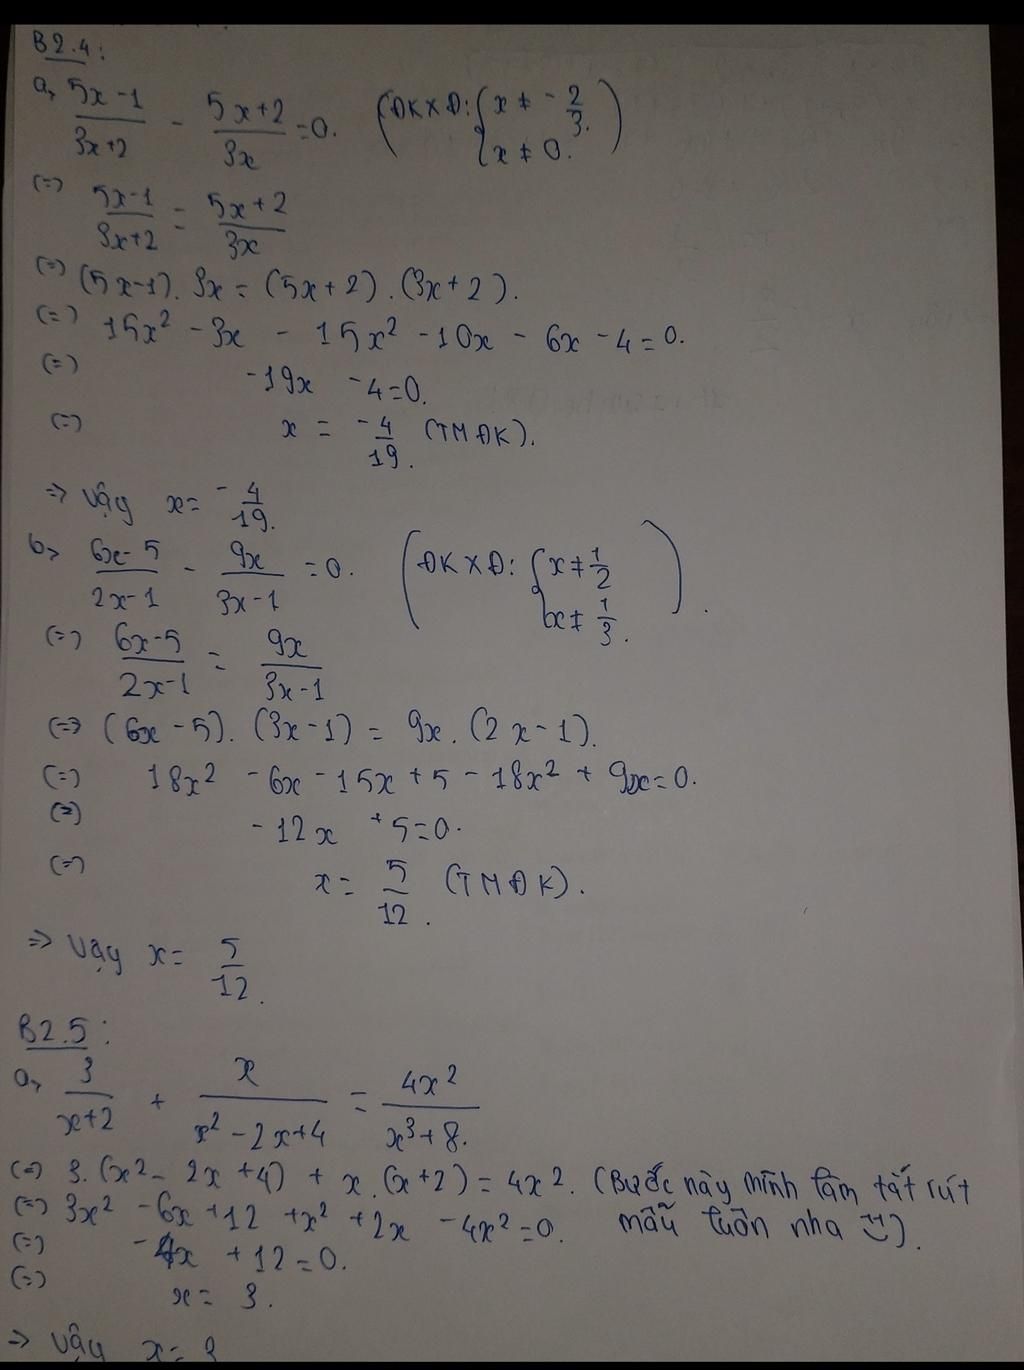 B2.4:
a, (5x-1)/(3x+2) - (5x+2)/(3x) = 0. (ĐKXĐ: { x ≠ -2/3. x ≠ 0. )
(=) (5x-1)/(3x+2) = (5x+2)/(3x)
(=) (5x-1). 3x = (5x+2).(3x+2).
(=) 15x² - 3x - 15x² - 10x - 6x - 4 = 0.
(=) -19x - 4 = 0.
(=) x = -4/19. (TMĐK).
=> Vậy x = -4/19.
b, (6x-5)/(2x-1) - (9x)/(3x-1) = 0. (ĐKXĐ: { x ≠ 1/2 x ≠ 1/3. ).
(=) (6x-5)/(2x-1) = (9x)/(3x-1)
(=) (6x-5). (3x-1) = 9x. (2x-1).
(=) 18x² - 6x - 15x + 5 - 18x² + 9x = 0.
(=) -12x + 5 = 0.
(=) x = 5/12. (TMĐK).
=> Vậy x = 5/12.
B2.5:
a, 3/(x+2) + x/(x²-2x+4) = 4x²/(x³+8.)
(=) 3.(x² - 2x + 4) + x.(x+2) = 4x². (Bước này mình làm tắt rút
(=) 3x² - 6x + 12 + x² + 2x - 4x² = 0. mẫu luôn nha :)).
(=) -4x + 12 = 0.
(=) x = 3.
=> Vậy x = 3